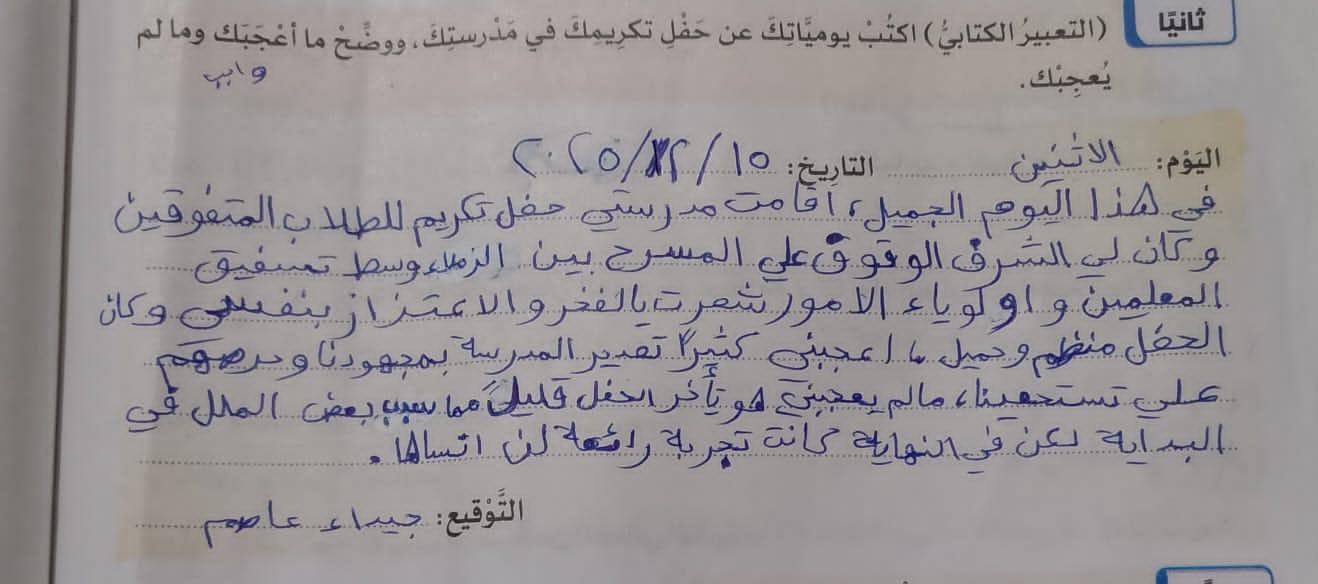 ثانيًا
(التعبيرُ الكتابيُّ) اكتُبْ يوميَّاتِكَ عن حَفْلِ تكريمِكَ في مَدْرستِكَ، ووضِّحْ ما أعْجَبَكَ وما لم
يُعجِبْك.
واجب
اليَوْم: الاثنين التاريخ: ١٥/١٢/٢٠٢٥
في هذا اليوم الجميل، اقامت مدرستي حفل تكريم للطلاب المتفوقين
وكان لي الشرف الوقوف علي المسرح بين الزملاء وسط تصفيق
المعلمين و اوكوياء الامور شعرت بالفخر والاعتزاز بنفسي وكان
الحفل منظم وجميل، اعجبني كثيرًا تقدير المدرسة بمجهودنا وحرصهم
علي تستحعينا، مالم يعجبني هو تأخر الحفل قليلًا مما سبب بعض الملل في
البداية لكن في النهاية كانت تجربة رائعة لن انساها.
التَّوْقيع: جيداء عاصم